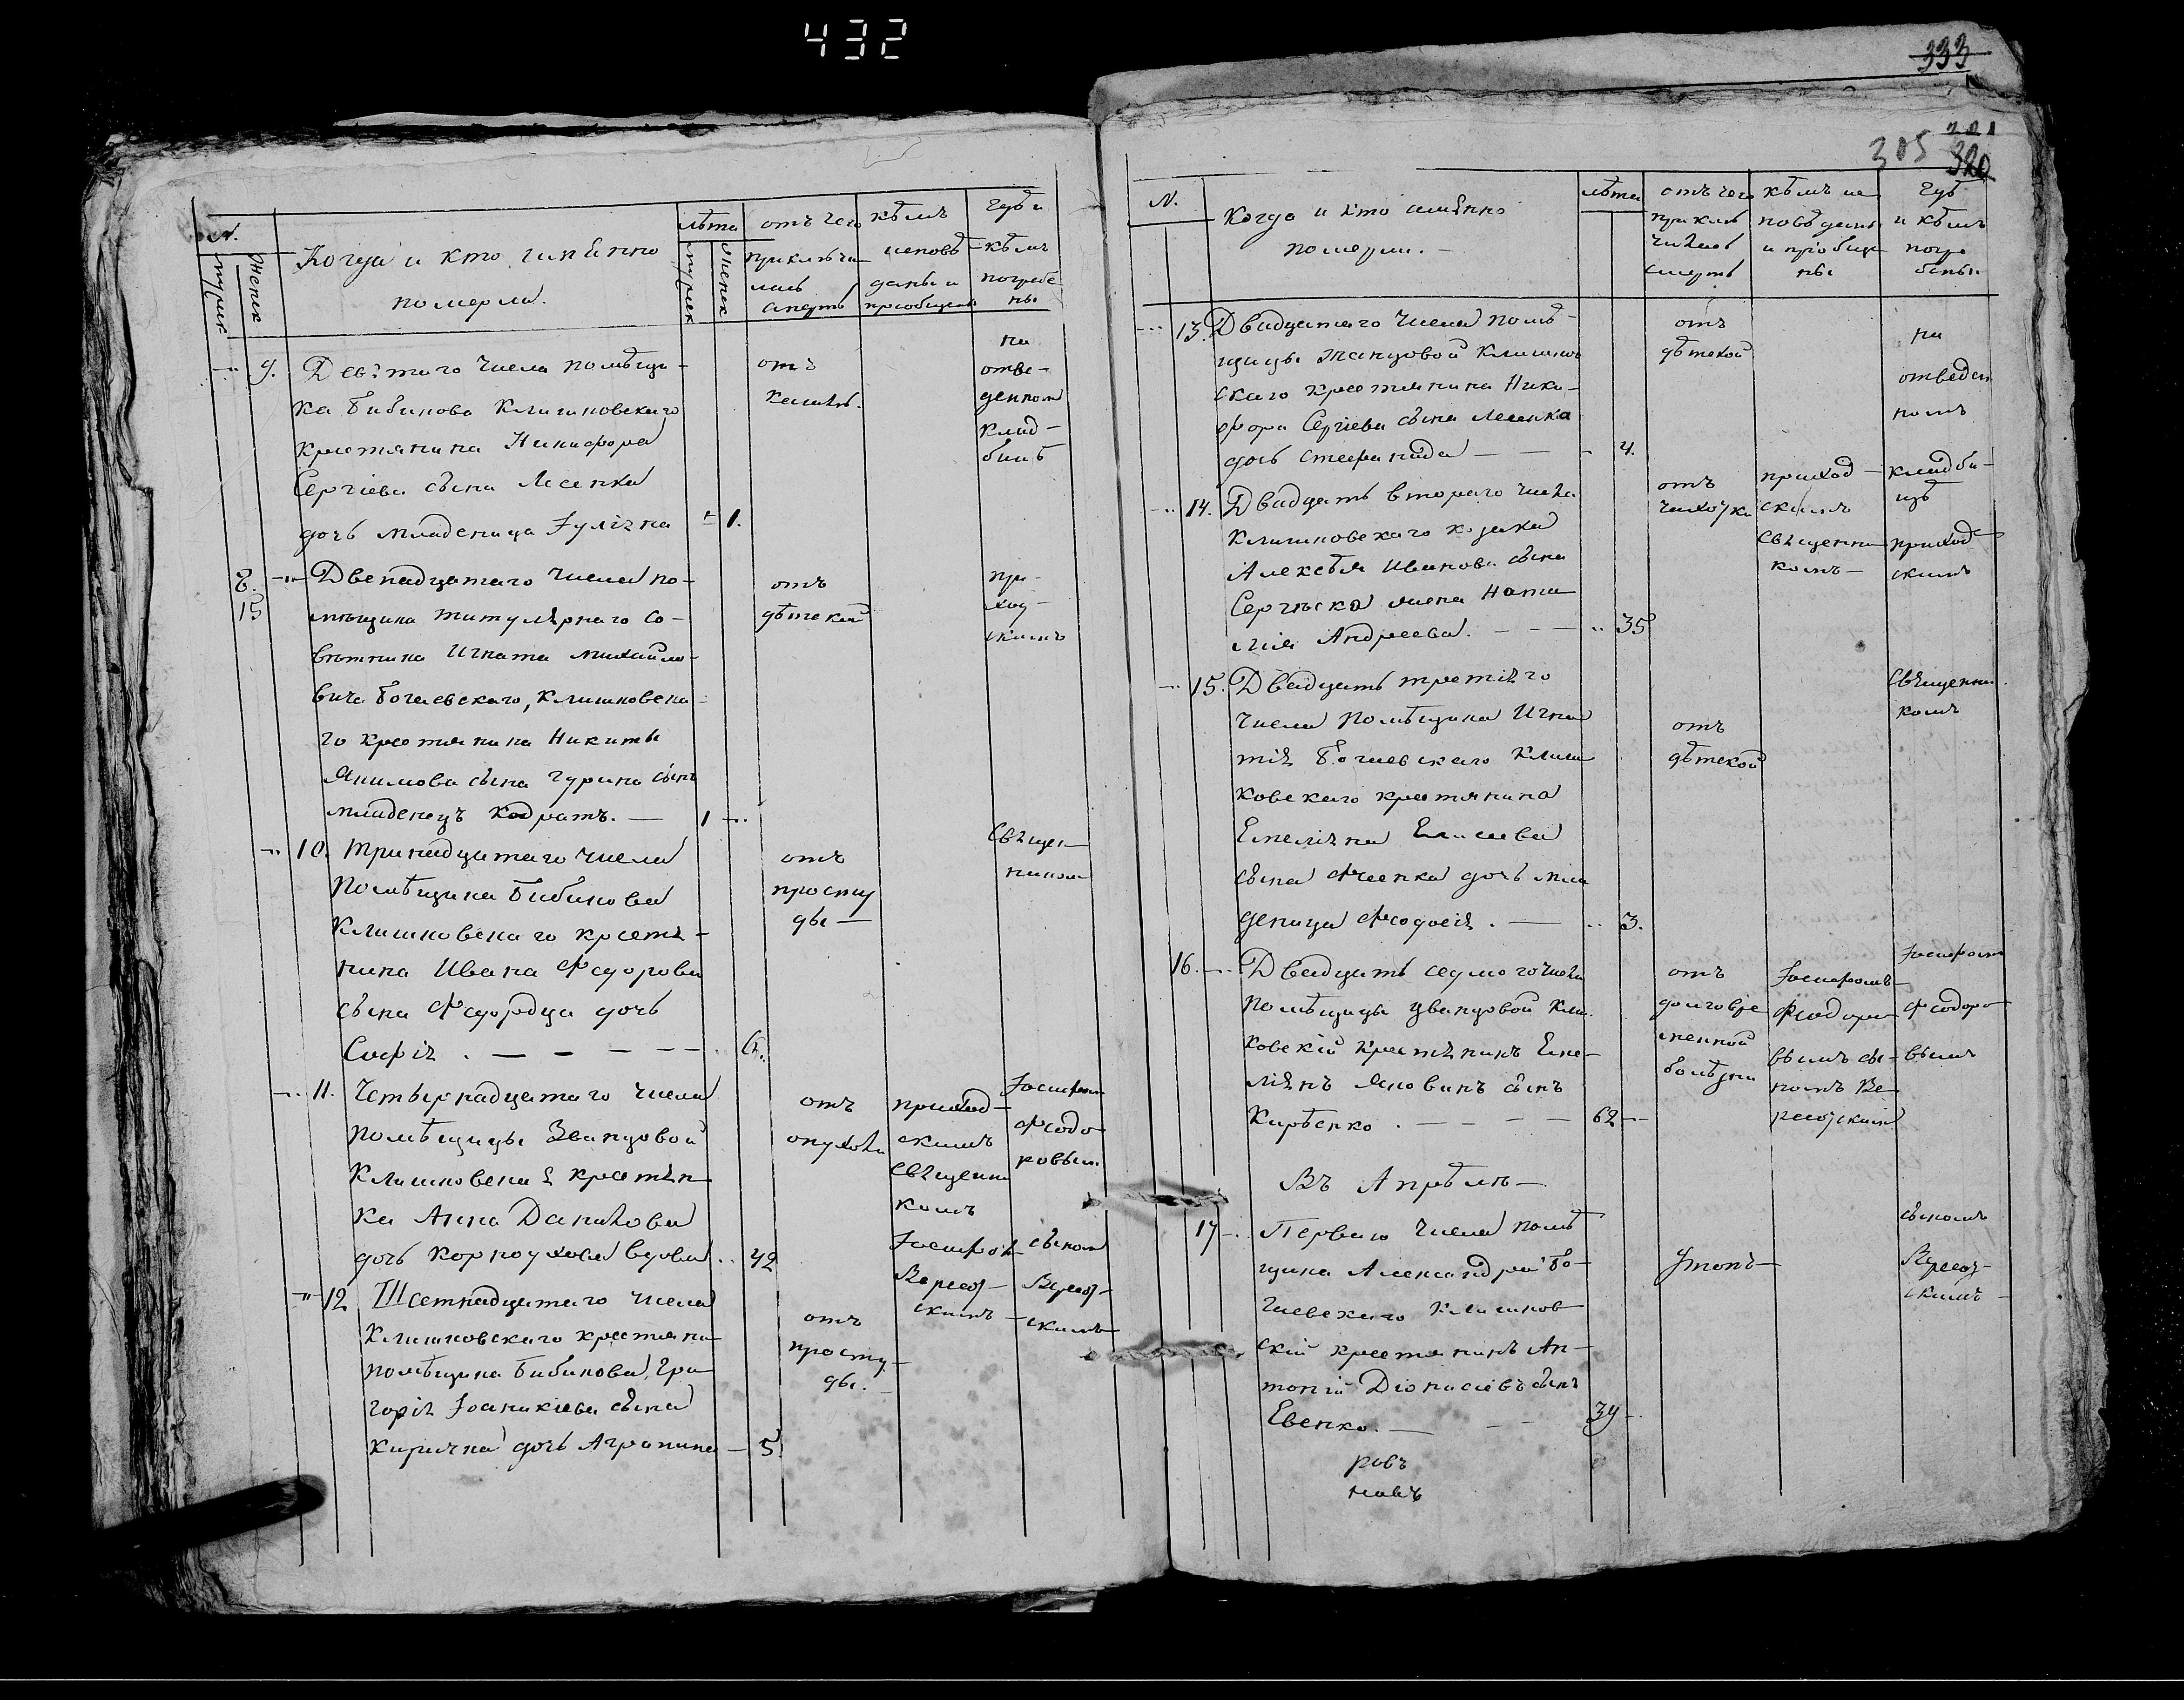 432
333
321
305 320
N.
мужск
женск
Когда и кто имѣнно
померли.
лѣта
мужск
женск
отъ чего
приключи-
лась
смерть
кѣмъ
исповѣ-
даны и
приобщены
гдѣ и
кѣмъ
погребе
ны
9. Девятаго числа помѣщи-
ка Бибикова Клишковскаго
крестянина Никифора
Сергіева сына Лесенка
дочь младеница Іуліяна 1.
отъ
кашлю.
на
отве-
денном
клад-
бищѣ
8. Двенадцатаго числа по-
15
мѣщика титулярнаго со-
вѣтника Игната Михайло-
вича Богаевскаго, Клишковска-
го крестянина Никиты
Якимова сына Гурина сынъ
младенецъ Кодратъ. — 1
отъ
дѣтской
при-
ход-
скимъ
10. Тринадцатаго числа
помѣщика Бибикова
Клишковскаго крестя-
нина Ивана Федорова
сына Федорца дочь
Софія . — — — — 6.
отъ
просту
ды —
священ-
ником
11. Четырнадцатаго числа
помѣщицы Званцовой
Клишковская крестян
ка Анна Данилова
дочь Корноухова вдова .. 42
отъ
опухоли
приход-
скимъ
священни
комъ
Іосифом
Вересоч-
скимъ
Іосифом
Федо-
ровым
сыном
Вересоч-
скимъ
12 Шестнадцатаго числа
Клишковскаго крестяни-
помѣщика Бибикова, Гри-
горія Іоаникіева сына
Киричка дочь Агрипина — 5.
отъ
просту-
ды. —
N.
Когда и кто имѣнно
померли. —
лѣта
отъ чего
приклю
чилась
смерть
кѣмъ ис
повѣданы
и приобще
ны
гдѣ
и кѣмъ
погре
бены
13. Двадцатаго числа помѣ-
щицы Жанцовой Клишков
скаго крестянина Ники-
фора Сергіева сына Лесенка
дочь Стефанида — — 4.
отъ
дѣтской
на
отведен
номъ
14. Двадцать втораго числа
Клишковскаго козака
Алексѣя Иванова сына
Сергѣска жена Ната
лія Андреева. — — — 35
отъ
чахотки
приход-
скимъ
священни
комъ —
кладби-
щѣ
приход-
скимъ
15. Двадцать третіяго
числа помѣщика Игна
тія Богаевскаго Клиш
ковскаго крестянина
Емеліяна Елисева
сына Фесенка дочь мла
деница Феодосія. — 3.
отъ
дѣтской
священни
комъ
16. Двадцать седмого числа
помѣщицы Званцовой Клиш
ковскій крестянинъ Еме-
ліянъ Яковинъ сынъ
Кирѣенко . — — — — 62 —
отъ
долговре
менной
болѣзни
Іосифомъ
Федоро-
вымъ сы-
номъ Ве-
ресочским
Іосифом
Федоро-
вымъ
Въ Апрѣлѣ —
17 — Перваго числа помѣ
щика Александра Бо-
гаевскаго Клишков
скій крестянинъ Ан-
тоній Діонисіевъ сынъ
Евенко. — — 39 —
утонъ —
сыномъ
Вересоч-
скимъ —